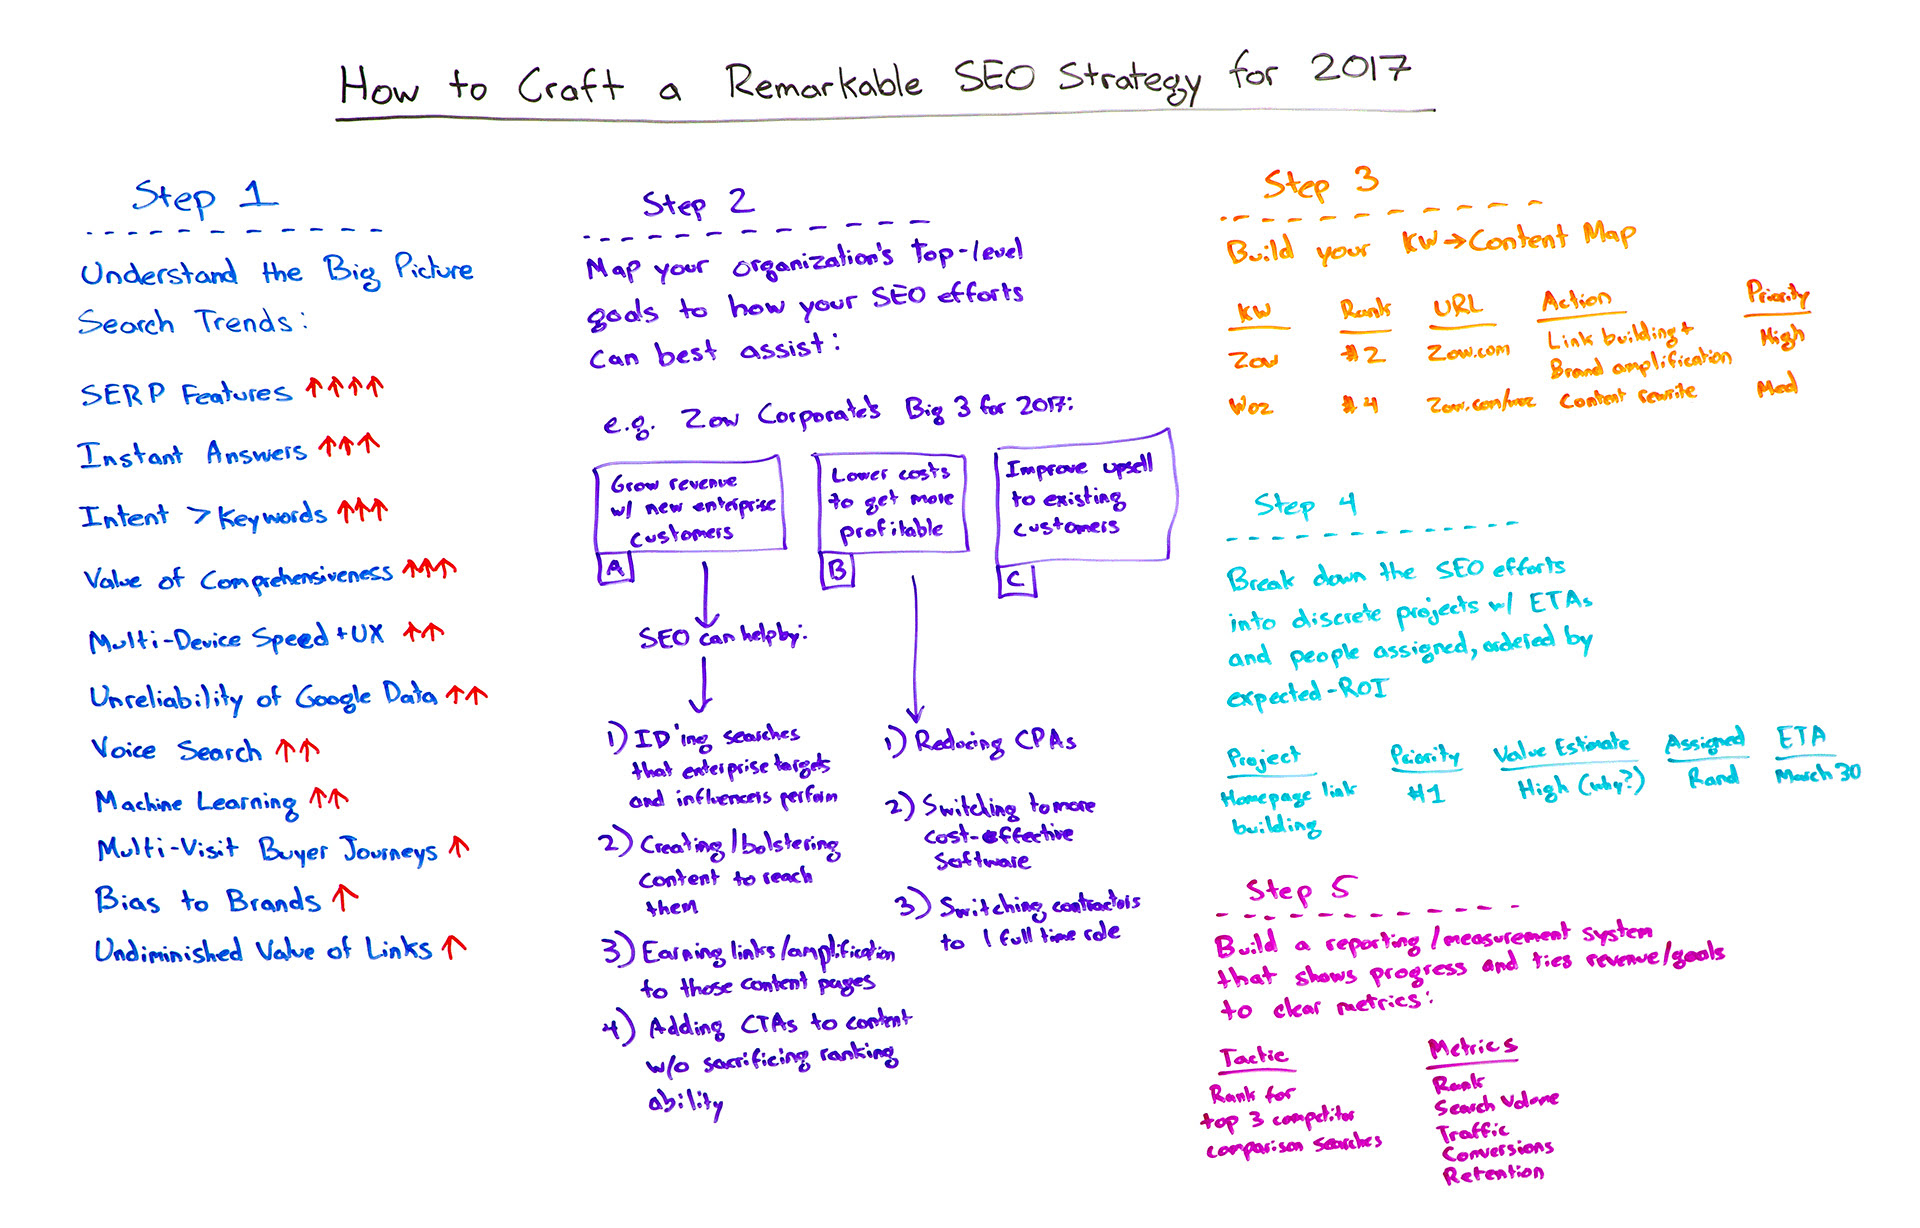 How to Craft a Remarkable SEO Strategy for 2017
Step 1
Understand the Big Picture
Search Trends:
SERP Features ↑↑↑↑
Instant Answers ↑↑↑
Intent > Keywords ↑↑↑
Value of Comprehensiveness ↑↑↑
Multi-Device Speed + UX ↑↑
Unreliability of Google Data ↑↑
Voice Search ↑↑
Machine Learning ↑↑
Multi-Visit Buyer Journeys ↑
Bias to Brands ↑
Undiminished Value of Links ↑
Step 2
Map your organization's Top-level
goals to how your SEO efforts
can best assist:
e.g. Zow Corporate's Big 3 for 2017:
Grow revenue
w/ new enterprise
customers
A
Lower costs
to get more
profitable
B
Improve upsell
to existing
customers
C
SEO can help by:
1) ID'ing searches
that enterprise targets
and influencers perform
2) Creating/bolstering
content to reach
them
3) Earning links/amplification
to those content pages
4) Adding CTAs to content
w/o sacrificing ranking
ability
1) Reducing CPAs
2) Switching to more
cost-effective
software
3) Switching contractors
to 1 full time role
Step 3
Build your KW→Content Map
KW Rank URL Action Priority
Zow #2 Zow.com Link building + High
Brand amplification
Woz #4 Zow.com/woz Content rewrite Med
Step 4
Break down the SEO efforts
into discrete projects w/ ETAs
and people assigned, ordered by
expected-ROI
Project Priority Value Estimate Assigned ETA
Homepage link #1 High (why?) Rand March 30
building
Step 5
Build a reporting/measurement system
that shows progress and ties revenue/goals
to clear metrics:
Tactic Metrics
Rank for Rank
top 3 competitor Search Volume
comparison searches Traffic
Conversions
Retention